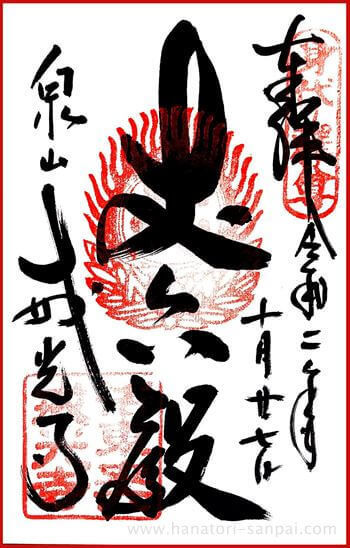 奉拝 令和二年
十月廿七日
丈六殿
泉山 戒光寺
www.hanatori-sanpai.com